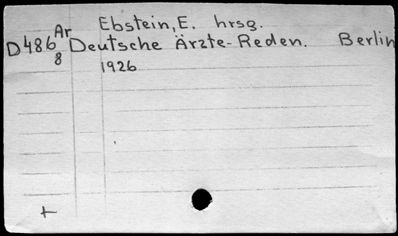 Ar Ebstein, E. hrsg.
D486 Deutsche Ärzte-Reden. Berlin
8 1926
+